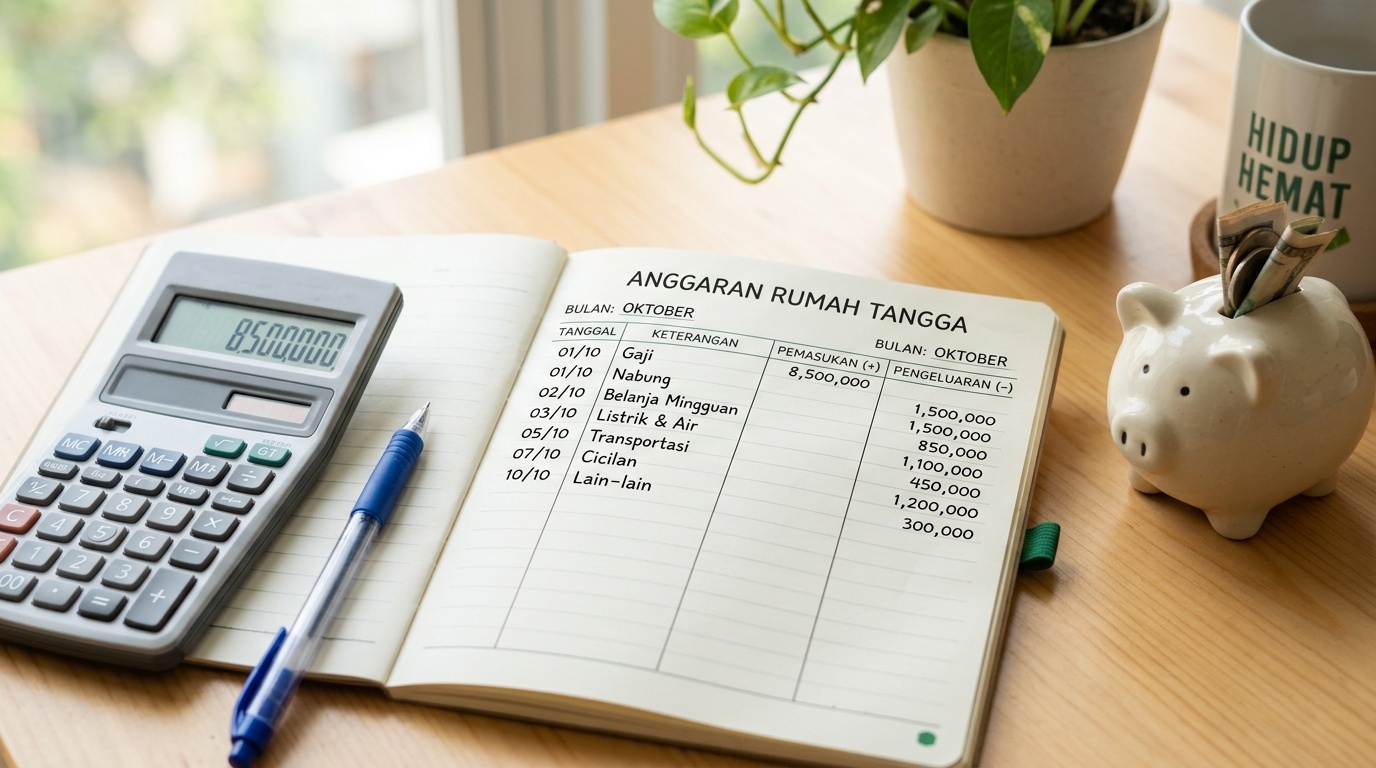 8,500,000
√
GT
MC
M-
M+
÷
7
8
9
×
C
4
5
6
−
1
2
3
00
·
=
+
ANGGARAN RUMAH TANGGA
BULAN: OKTOBER
BULAN: OKTOBER
TANGGAL KETERANGAN PEMASUKAN (+) PENGELUARAN (−)
01/10 Gaji 8,500,000
01/10 Nabung 1,500,000
02/10 Belanja Mingguan 1,500,000
03/10 Listrik & Air 850,000
05/10 Transportasi 1,100,000
07/10 Cicilan 450,000
10/10 Lain-lain 1,200,000
300,000
HIDUP
HEMAT